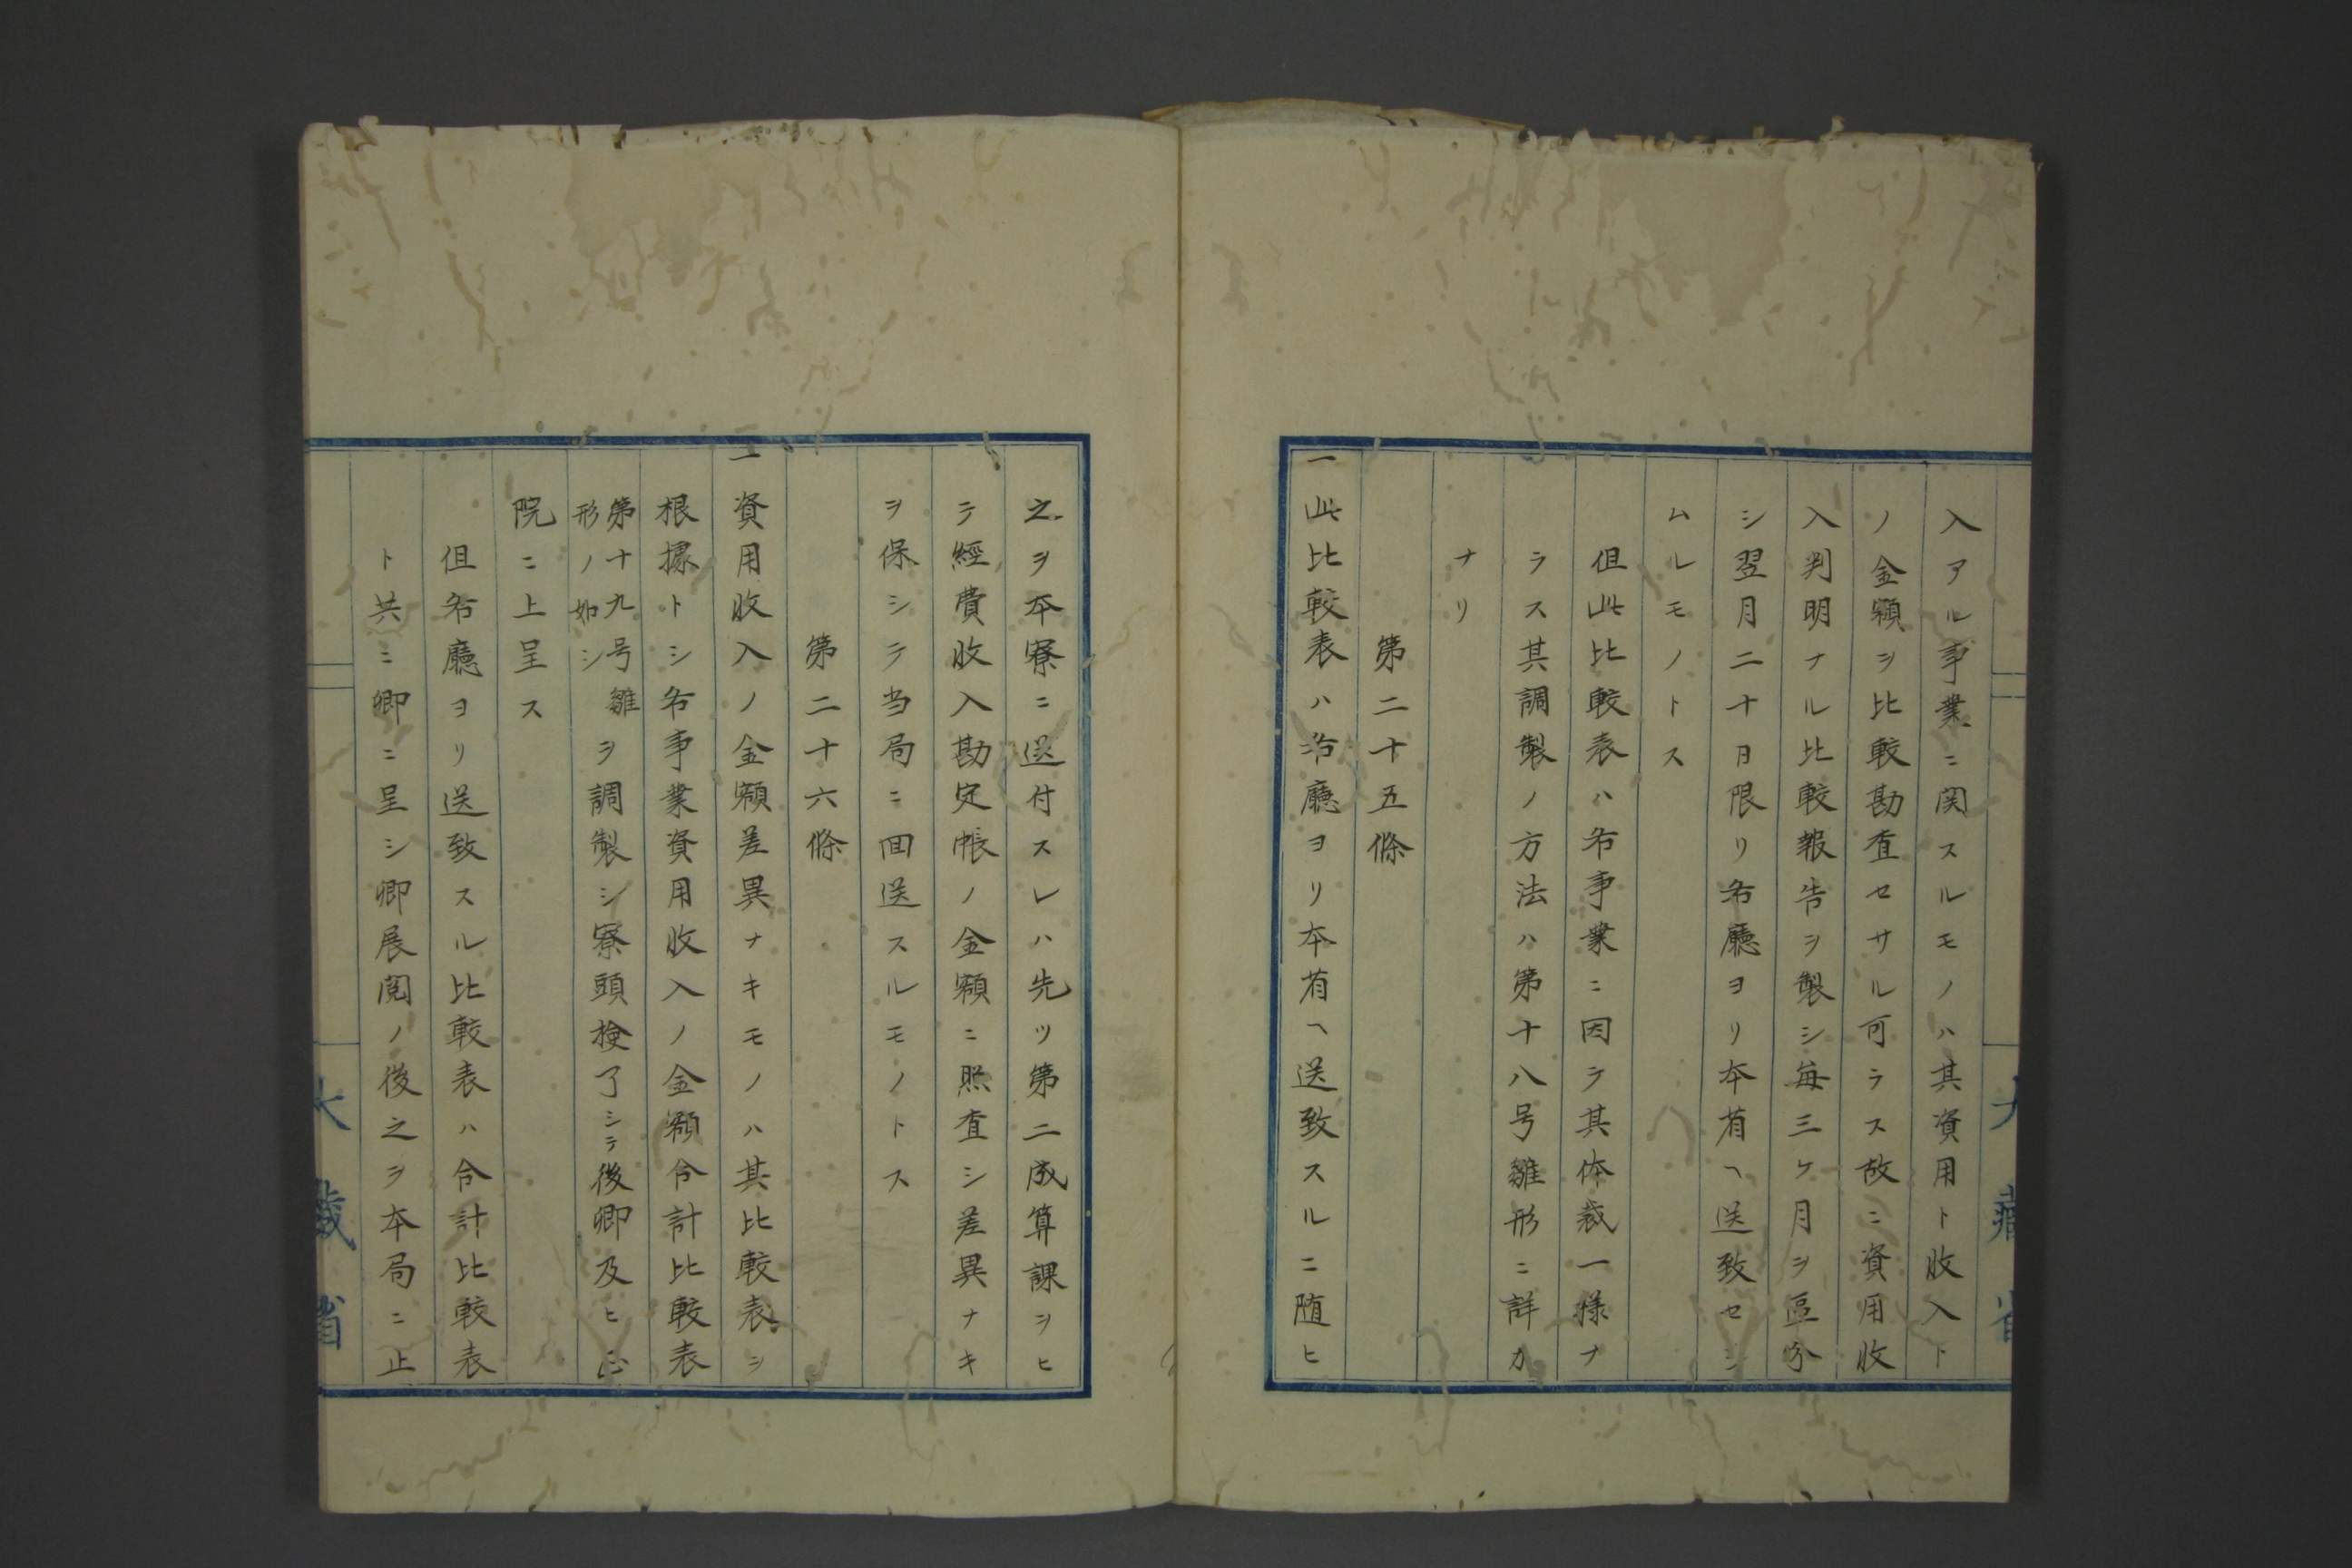 入アル事業ニ関スルモノハ其資用ト收入ト
ノ金額ヲ比較勘査セサル可ラス故ニ資用收
入判明ナル比較報告ヲ製シ毎三ケ月ヲ區分
シ翌月二十日限リ各廳ヨリ本省ヘ送致セシ
ムルモノトス
但此比較表ハ各事業ニ因テ其体裁一様ナ
ラス其調製ノ方法ハ第十八号雛形ニ詳カ
ナリ
第二十五條
一此比較表ハ各廳ヨリ本省ヘ送致スルニ随ヒ
之ヲ本寮ニ送付スレハ先ツ第二成算課ヲヒ
テ經費收入勘定帳ノ金額ニ照査シ差異ナキ
ヲ保シテ当局ニ回送スルモノトス
第二十六條
一資用收入ノ金額差異ナキモノハ其比較表ヲ
根據トシ各事業資用收入ノ金額合計比較表
第十九号雛
形ノ如シ
ヲ調製シ寮頭検了シテ後卿及ヒ正
院ニ上呈ス
但各廳ヨリ送致スル比較表ハ合計比較表
ト共ニ卿ニ呈シ卿展閲ノ後之ヲ本局ニ止
大藏省